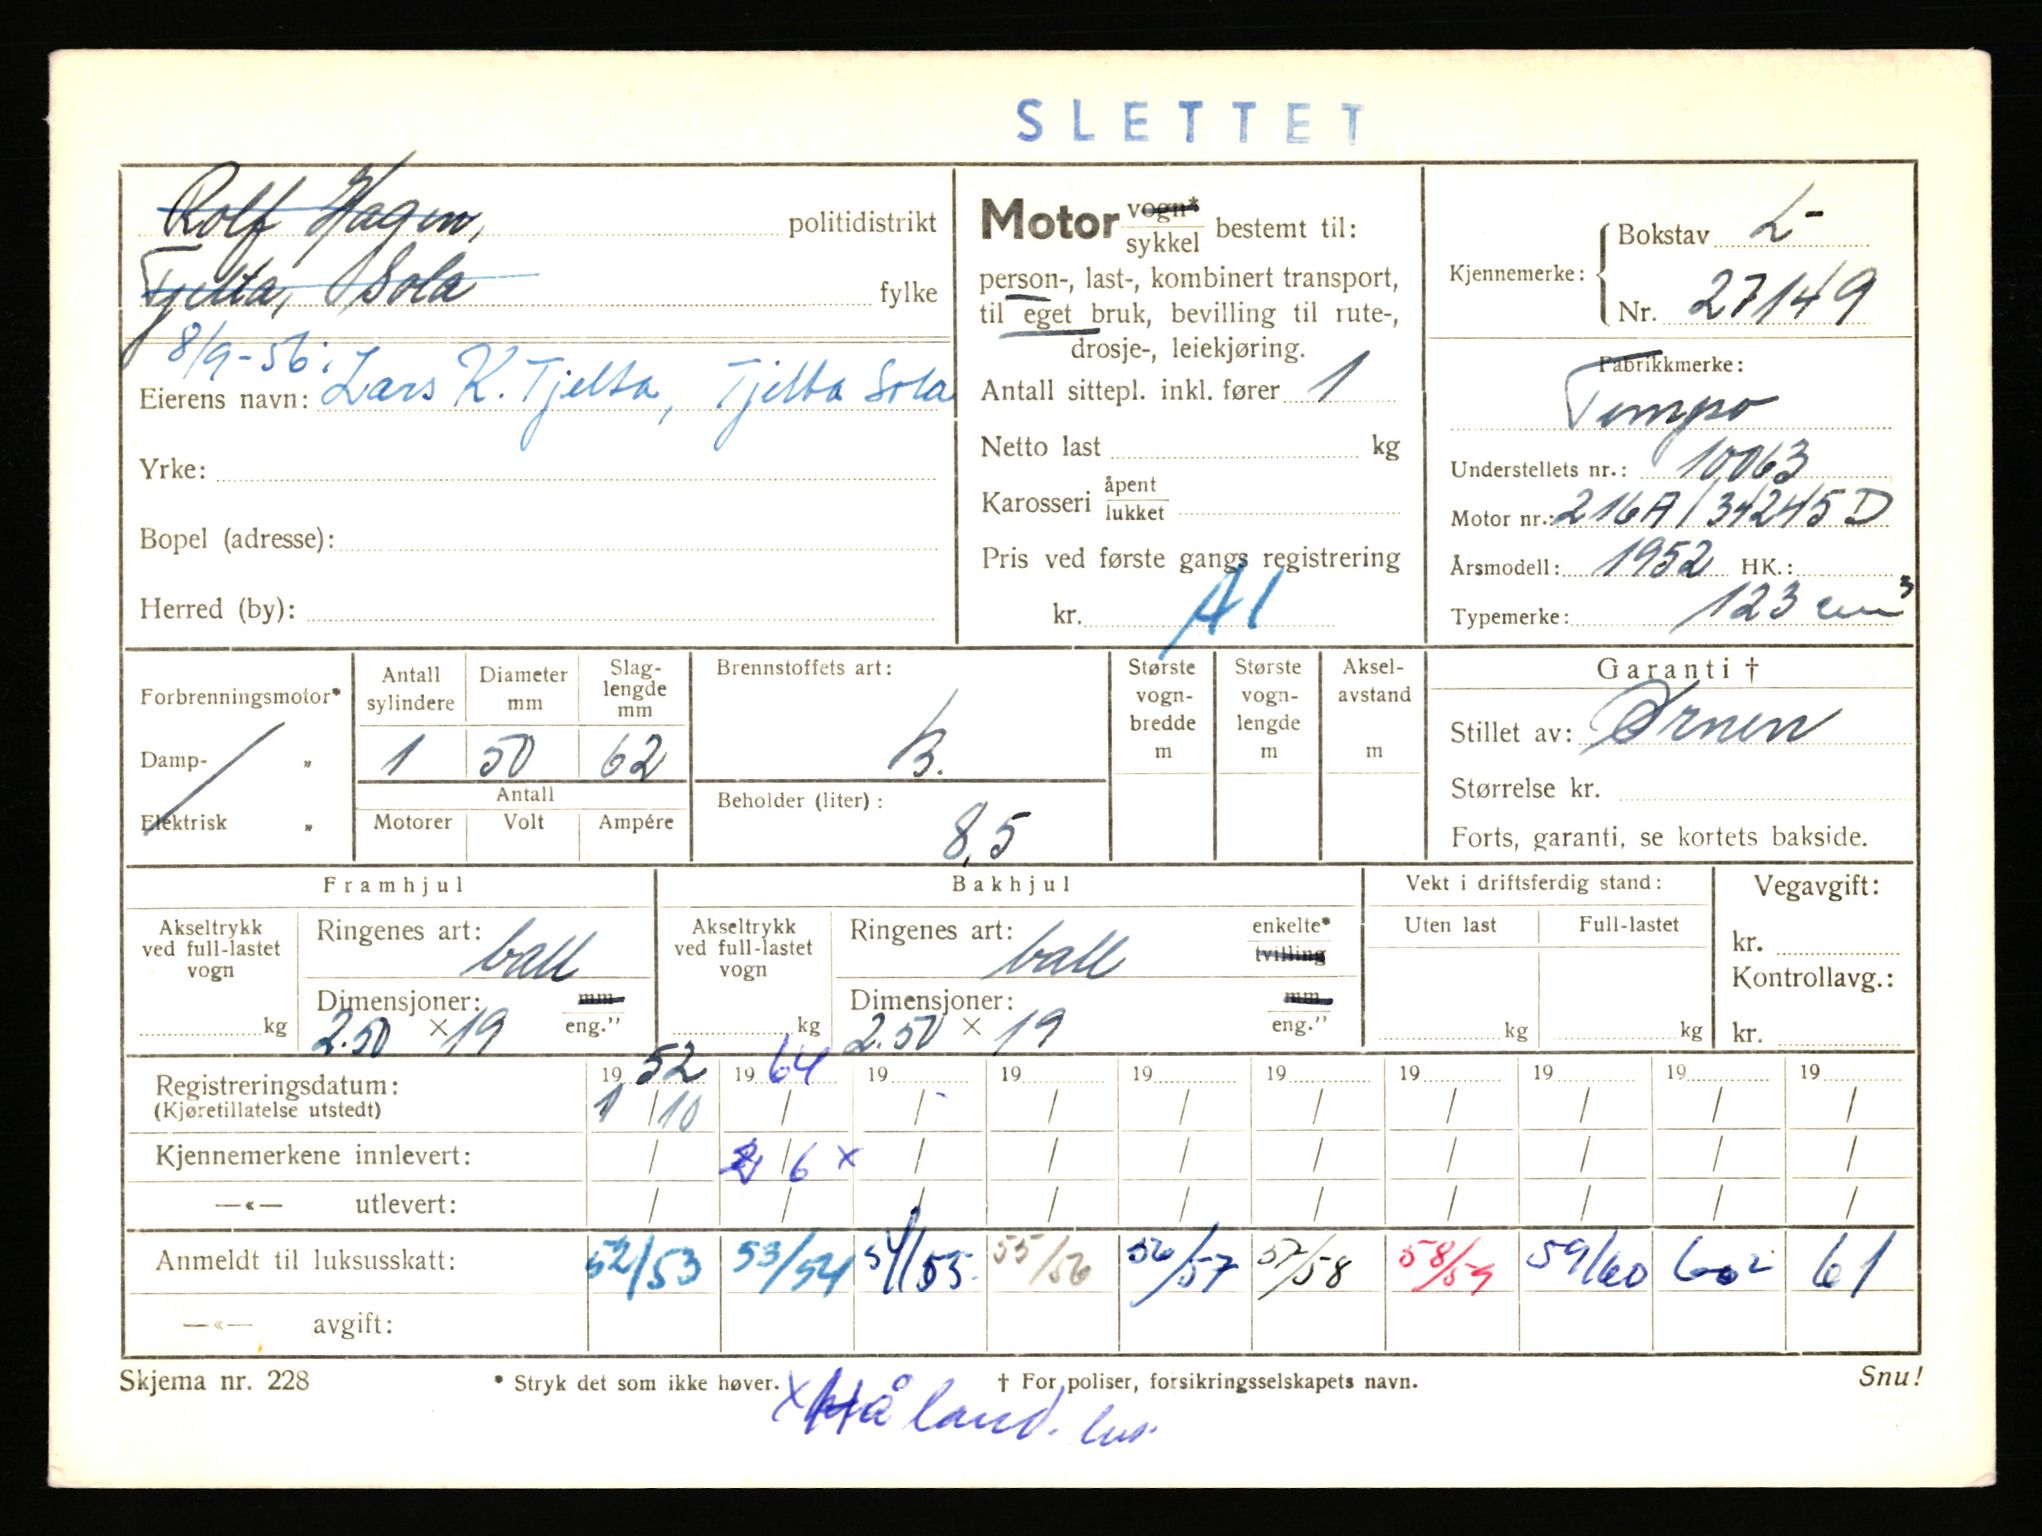 SLETTET
Rolf Hagen, politidistrikt
Tjelta, Sola fylke
8/9-56:
Eierens navn: Lars K. Tjelta, Tjelta Sola
Yrke:
Bopel (adresse):
Herred (by):
Motor vogn* sykkel bestemt til:
person-, last-, kombinert transport,
til eget bruk, bevilling til rute-,
drosje-, leiekjøring.
Antall sittepl. inkl. fører 1
Netto last kg
Karosseri åpent lukket
Pris ved første gangs registrering
kr. A1
Kjennemerke: Bokstav L-
Nr. 27149
Fabrikkmerke:
Tempo
Understellets nr.: 10063
Motor nr.: 216A/34245D
Årsmodell: 1952 HK.:
Typemerke: 123 cm³
Forbrenningsmotor*
Damp- "
Elektrisk "
Antall sylindere 1
Diameter mm 50
Slag-lengde mm 62
Antall
Motorer Volt Ampére
Brennstoffets art:
b.
Beholder (liter):
8,5
Største vogn-bredde m
Største vogn-lengde m
Aksel-avstand m
Garanti †
Stillet av: Ørnen
Størrelse kr.
Forts, garanti, se kortets bakside.
Framhjul
Akseltrykk ved full-lastet vogn
kg
Ringenes art: ball
Dimensjoner: mm
2.50 × 19 eng."
Bakhjul
Akseltrykk ved full-lastet vogn
kg
Ringenes art: ball enkelte* tvilling
Dimensjoner: mm
2.50 × 19 eng."
Vekt i driftsferdig stand:
Uten last Full-lastet
kg kg
Vegavgift:
kr.
Kontrollavg.:
kr.
Registreringsdatum: 19 52 19 64 19 19 19 19 19 19 19 19
(Kjøretillatelse utstedt) 1/10 / / / / / / / / /
Kjennemerkene innlevert: / / 6 x / / / / / / / /
—«— utlevert: / / / / / / / / / /
Anmeldt til luksusskatt: 52/53 53/54 54/55 55/56 56/57 57/58 58/59 59/60 61
—«— avgift:
Skjema nr. 228 * Stryk det som ikke høver. † For poliser, forsikringsselskapets navn. Snu!
x Håland